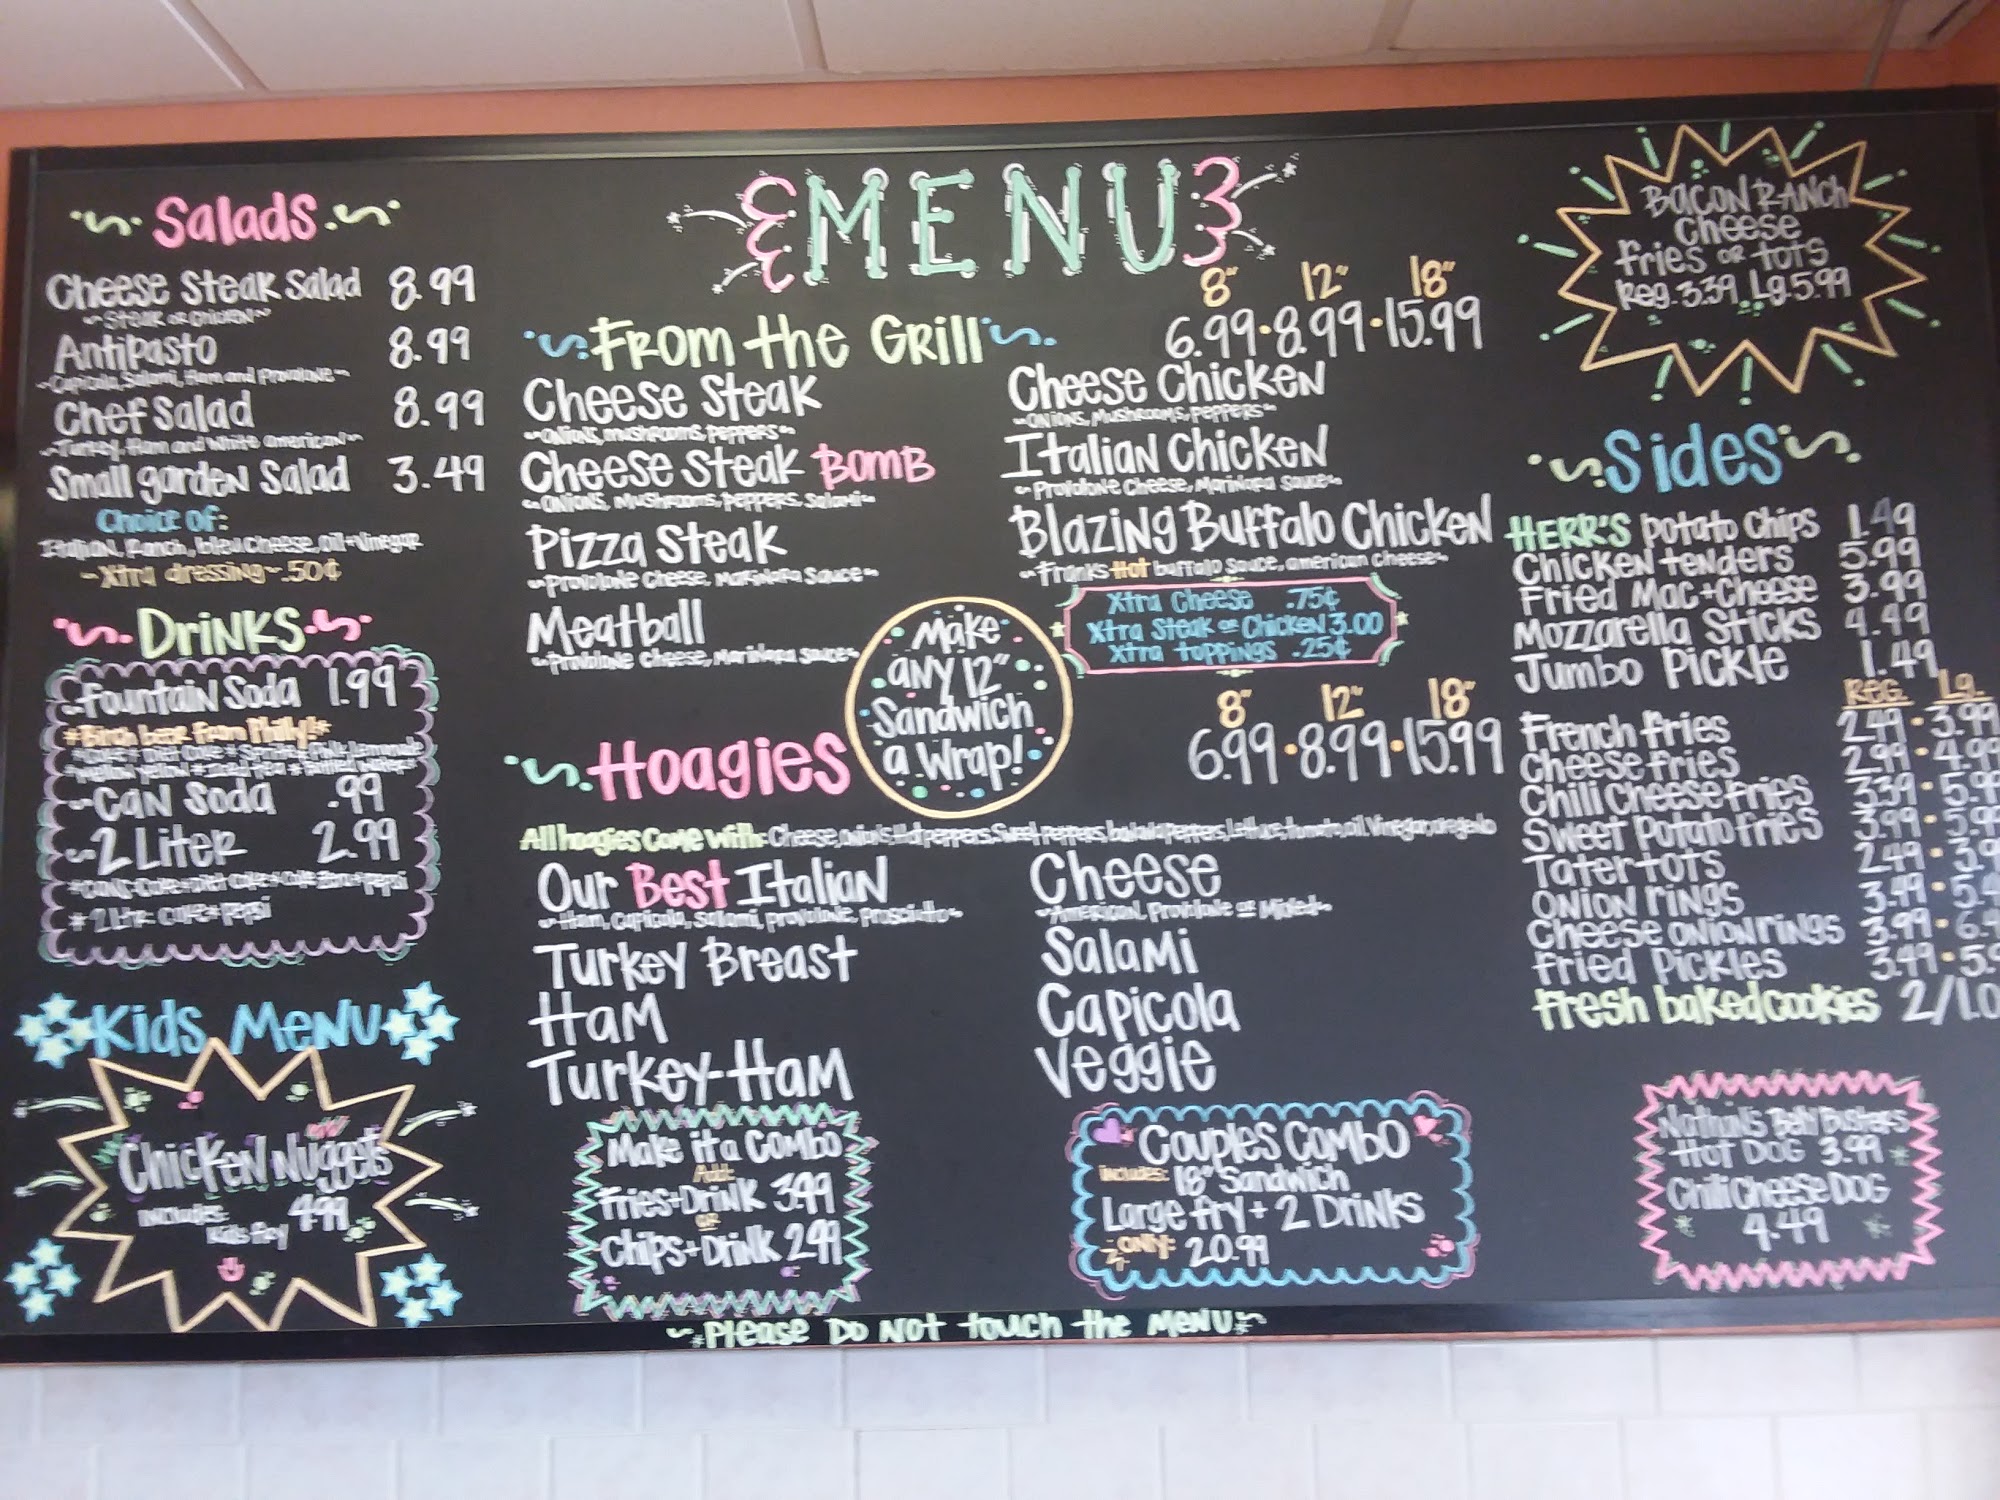 MENU
Salads
Cheese Steak Salad 8.99
~Steak or Chicken~
Antipasto 8.99
~Capicola, Salami, Ham and Provolone~
Chef Salad 8.99
~Turkey, Ham and White american~
Small garden Salad 3.49
Choice of:
Italian, Ranch, bleu cheese, oil+Vinegar
~Xtra dressing~.50¢
Drinks
~Fountain Soda 1.99
*Birch beer from Philly!*
*Coke* Diet Coke* Sprite* Pink Lemonade
*Mellow Yellow* Iced tea* Bottled Water*
~Can Soda .99
~2 Liter 2.99
*2 Ltr: Coke*pepsi
Kids Menu
Chicken Nuggets
includes: 4.99
Kids fry
From the Grill
8" 12" 18"
6.99·8.99·15.99
Cheese Steak
~Onions, mushrooms, peppers~
Cheese Steak BOMB
~Onions, Mushrooms, peppers, Salami~
Pizza Steak
~Provolone Cheese, Marinara Sauce~
Meatball
~Provolone Cheese, Marinara Sauce~
Cheese Chicken
~Onions, Mushrooms, Peppers~
Italian Chicken
~Provolone Cheese, Marinara Sauce~
Blazing Buffalo Chicken
~Franks Hot buffalo Sauce, american Cheese~
Xtra Cheese .75¢
Xtra Steak or Chicken 3.00
Xtra toppings .25¢
Make
any 12"
Sandwich
a Wrap!
Hoagies
8" 12" 18"
6.99·8.99·15.99
All hoagies Come with: Cheese, onions, Hot peppers, Sweet peppers, banana peppers, lettuce, tomato, oil, Vinegar, oregano
Our Best Italian
~Ham, Capicola, Salami, provolone, Prosciutto~
Turkey Breast
Ham
Turkey-Ham
Cheese
~American, Provolone or Mixed~
Salami
Capicola
Veggie
Make it a Combo
Add:
Fries+Drink 3.99
or
Chips+Drink 2.99
Couples Combo
includes: 18" Sandwich
Large fry + 2 Drinks
Only: 20.99
Bacon Ranch
Cheese
fries or tots
Reg. 3.39 Lg. 5.99
Sides
HERR'S potato chips 1.49
Chicken tenders 5.99
Fried Mac+Cheese 3.99
Mozzarella Sticks 4.49
Jumbo Pickle 1.49
Reg. Lg.
French fries 2.49 · 3.99
Cheese fries 2.99 · 4.99
Chili Cheese fries 3.39 · 5.9
Sweet Potato fries 3.99 · 5.9
Tater tots 2.49 · 3.9
Onion rings 3.49 · 5.4
Cheese onion rings 3.99 · 6.4
Fried Pickles 3.49 · 5.
Fresh baked cookies 2/1.0
Nathan's Belly Busters
Hot Dog 3.99
Chili Cheese Dog
4.49
~*Please Do Not touch the Menu*~